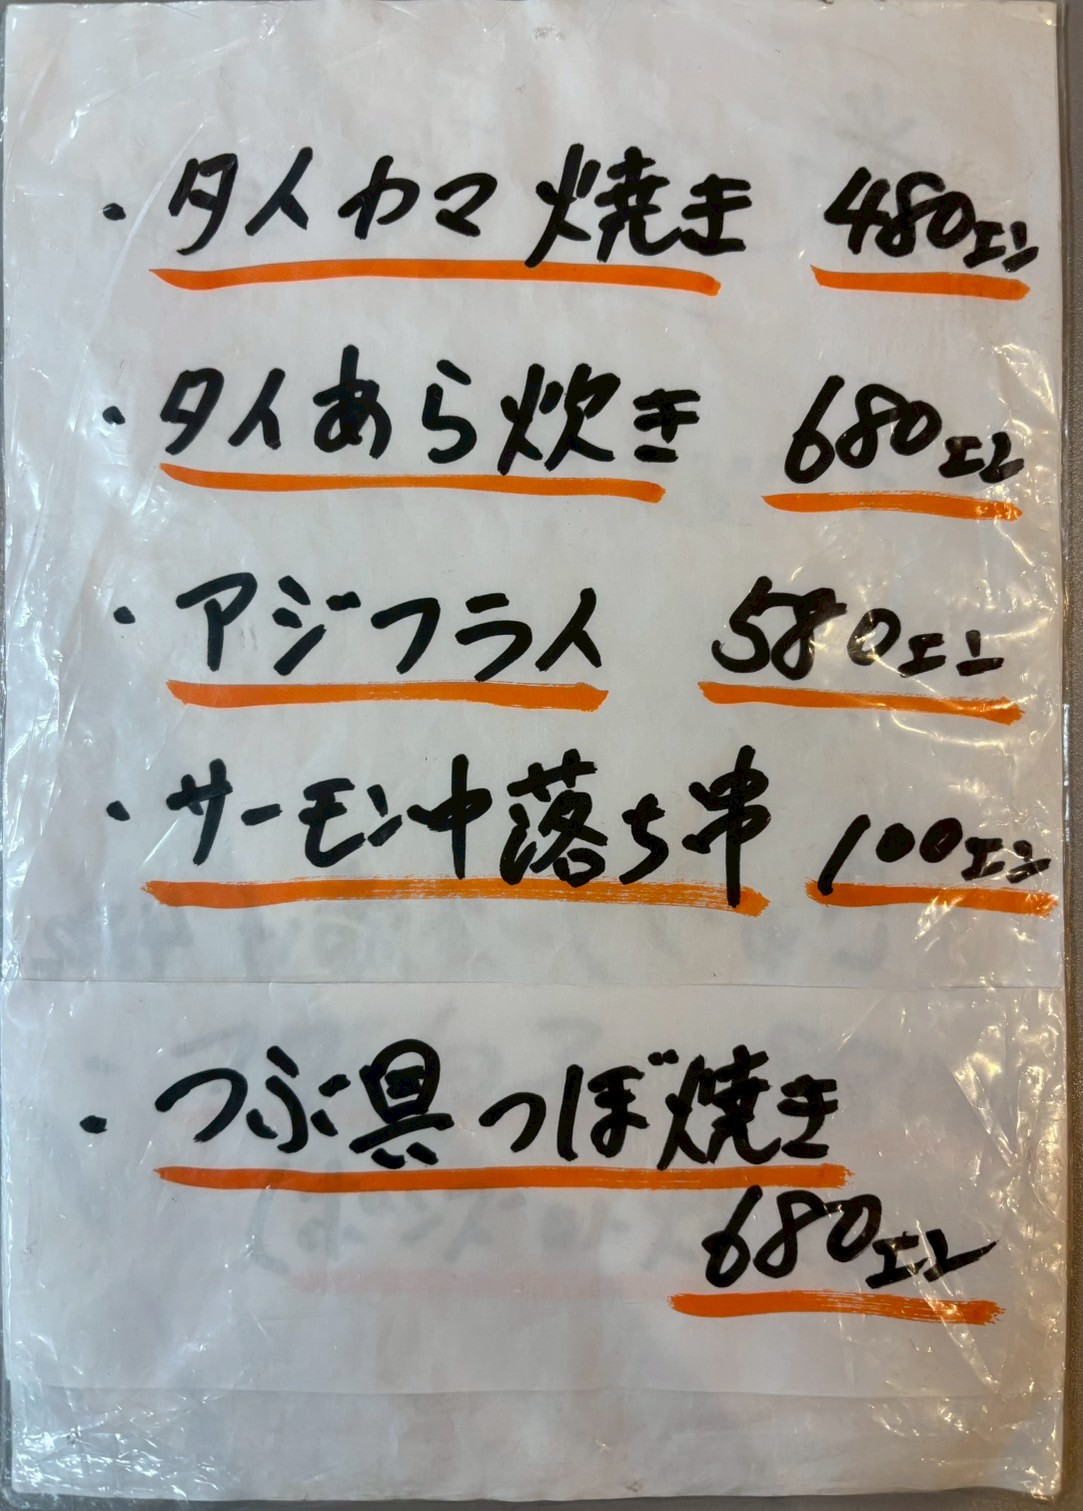 ・タイカマ焼き 480エン
・タイあら炊き 680エン
・アジフライ 580エン
・サーモン中落ち串 100エン
・つぶ貝つぼ焼き
680エン